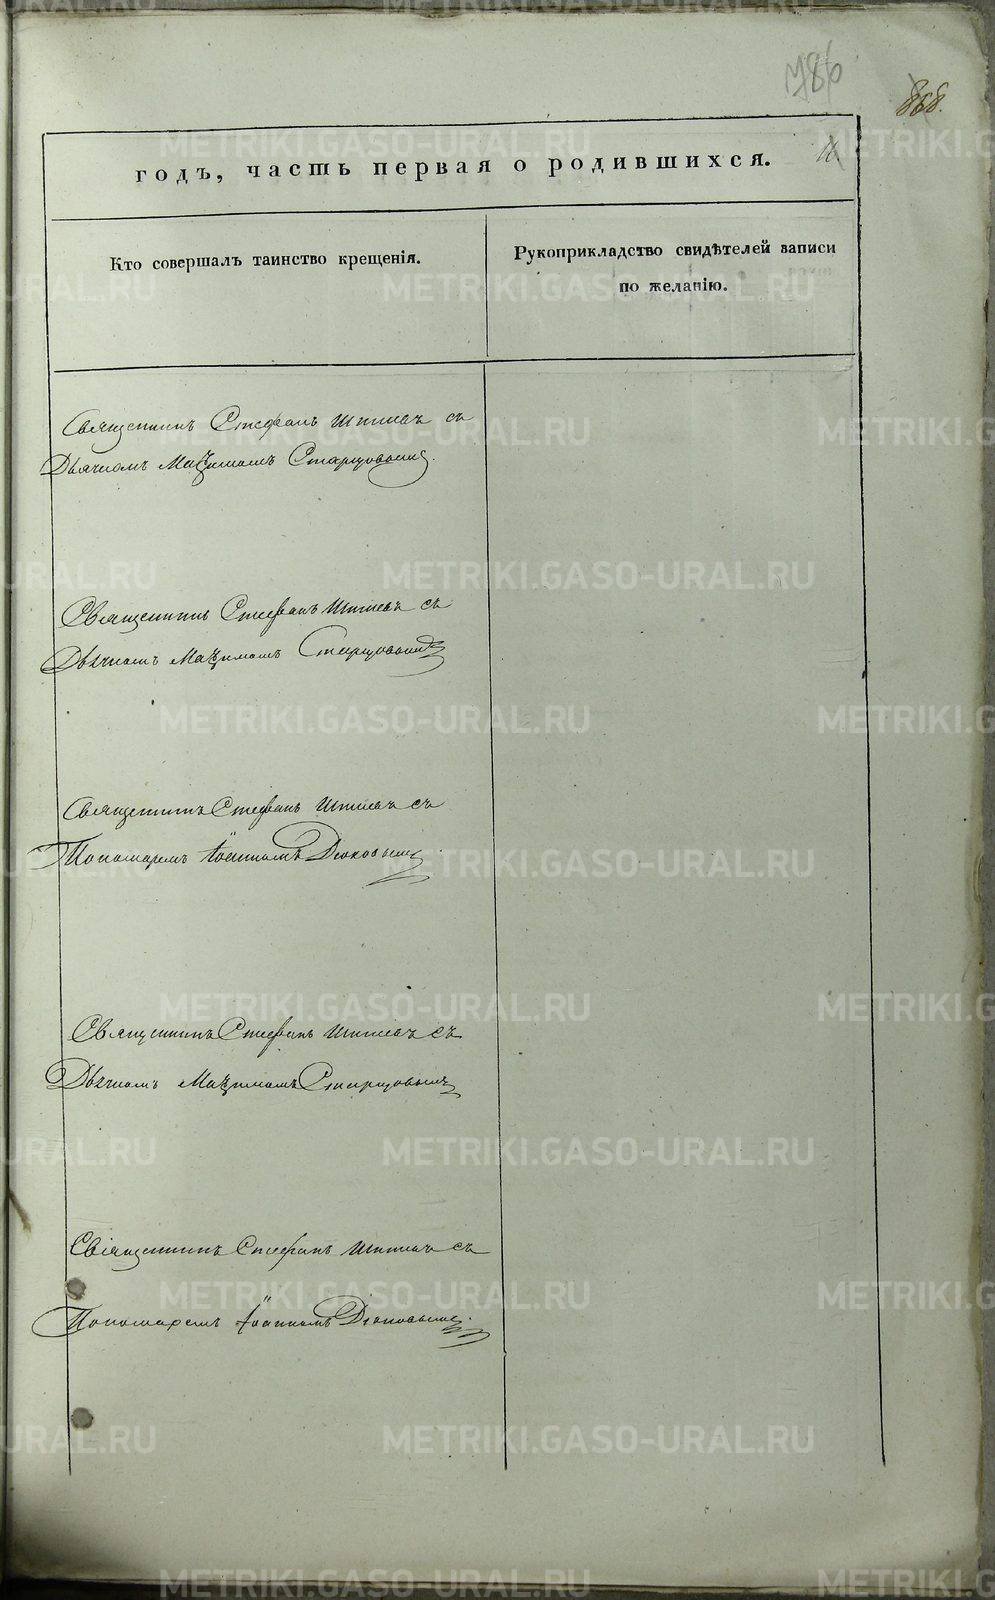 786
868.
16
годъ, часть первая о родившихся.
Кто совершалъ таинство крещенія.
Рукоприкладство свидѣтелей записи
по желанію.
Священникъ Стефанъ Шишевъ съ
Дьячкомъ Максимомъ Старцовымъ.
Священникъ Стефанъ Шишевъ съ
Дьячкомъ Максимомъ Старцовымъ
Священникъ Стефанъ Шишевъ съ
Пономаремъ Іоанномъ Дюковымъ.
Священникъ Стефанъ Шишевъ съ
Дьячкомъ Максимомъ Старцовымъ
Священникъ Стефанъ Шишевъ съ
Пономаремъ Іоанномъ Дюковымъ.
METRIKI.GASO-URAL.RU